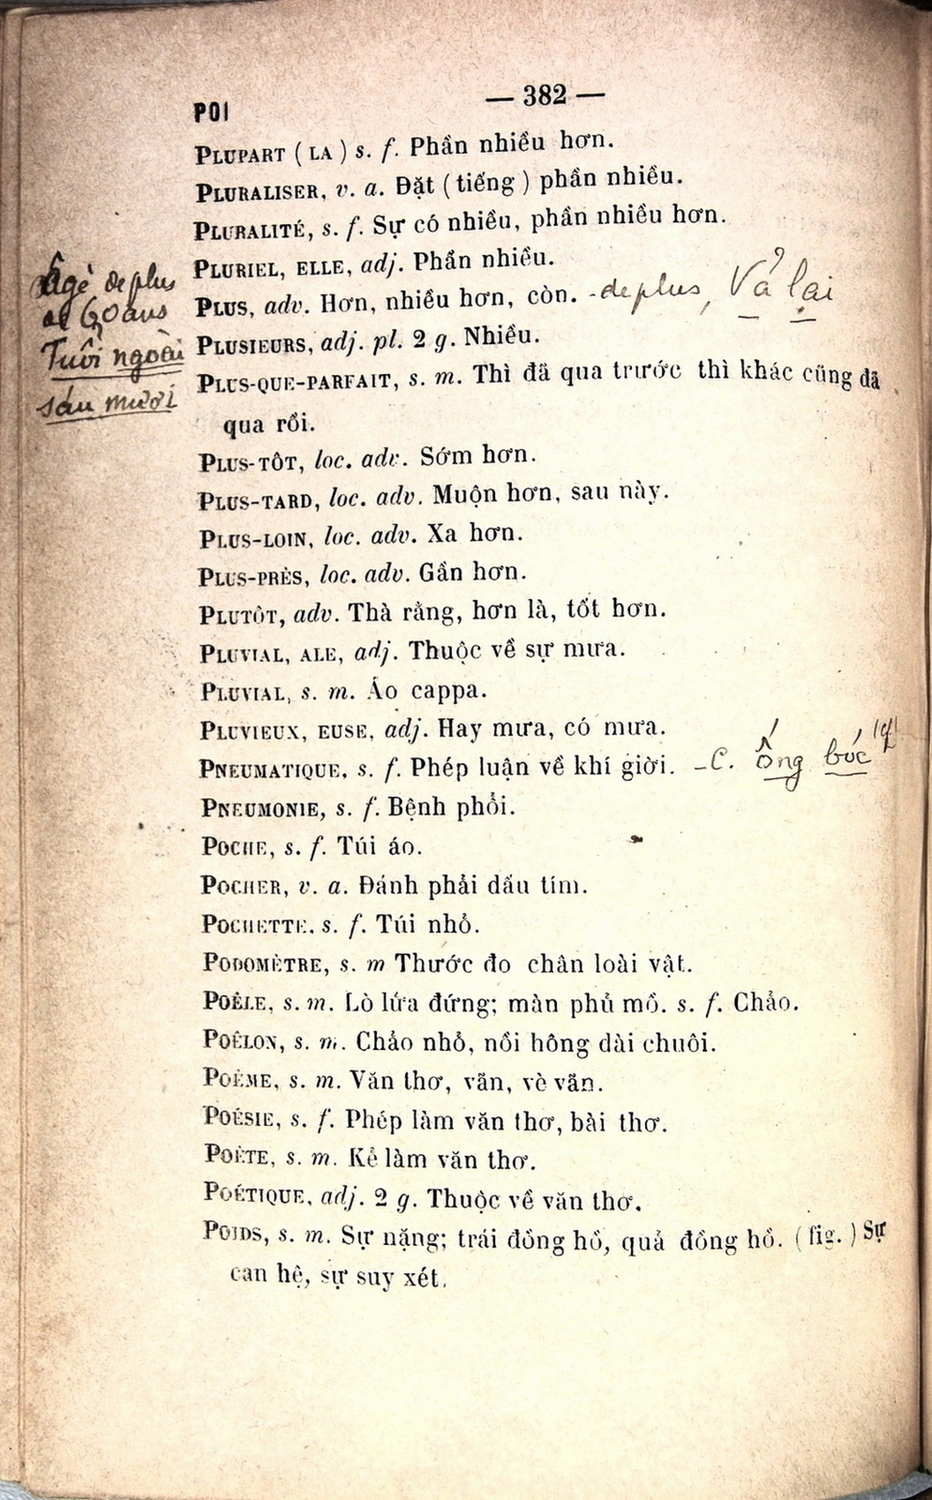 POI
— 382 —
PLUPART ( LA ) s. f. Phần nhiều hơn.
PLURALISER, v. a. Đặt ( tiếng ) phần nhiều.
PLURALITÉ, s. f. Sự có nhiều, phần nhiều hơn.
PLURIEL, ELLE, adj. Phần nhiều.
PLUS, adv. Hơn, nhiều hơn, còn. - de plus, Vả lại
Âgé de plus
de 60 ans
Tuổi ngoài
sáu mươi
PLUSIEURS, adj. pl. 2 g. Nhiều.
PLUS-QUE-PARFAIT, s. m. Thì đã qua trước thì khác cũng đã
qua rồi.
PLUS-TÔT, loc. adv. Sớm hơn.
PLUS-TARD, loc. adv. Muộn hơn, sau này.
PLUS-LOIN, loc. adv. Xa hơn.
PLUS-PRÈS, loc. adv. Gần hơn.
PLUTÔT, adv. Thà rằng, hơn là, tốt hơn.
PLUVIAL, ALE, adj. Thuộc về sự mưa.
PLUVIAL, s. m. Áo cappa.
PLUVIEUX, EUSE, adj. Hay mưa, có mưa.
PNEUMATIQUE, s. f. Phép luận về khí giời. - C. ống bóc
PNEUMONIE, s. f. Bệnh phổi.
POCHE, s. f. Túi áo.
POCHER, v. a. Đánh phải dấu tím.
POCHETTE. s. f. Túi nhỏ.
PODOMÈTRE, s. m Thước đo chân loài vật.
POÊLE, s. m. Lò lửa đứng; màn phủ mồ. s. f. Chảo.
POÊLON, s. m. Chảo nhỏ, nồi hông dài chuôi.
POÈME, s. m. Văn thơ, vãn, vè vãn.
POÉSIE, s. f. Phép làm văn thơ, bài thơ.
POÈTE, s. m. Kẻ làm văn thơ.
POÉTIQUE, adj. 2 g. Thuộc về văn thơ.
POIDS, s. m. Sự nặng; trái đồng hồ, quả đồng hồ. ( fig. ) Sự
can hệ, sự suy xét.